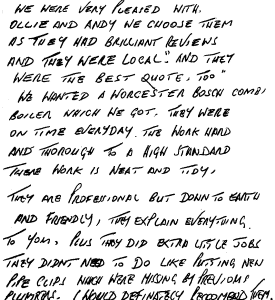 WE WERE VERY PLEASED WITH.
OLLIE AND ANDY WE CHOOSE THEM
AS THEY HAD BRILLIANT REVIEWS
AND THEY WERE LOCAL". AND THEY
WERE THE BEST QUOTE, TOO"
WE WANTED A WORCESTER BOSCH COMBI
BOILER WHICH WE GOT. THEY WERE
ON TIME EVERYDAY. THE WORK HARD
AND THOROUGH TO A HIGH STANDARD
THERE WORK IS NEAT AND TIDY,
THEY ARE PROFESSIONAL BUT DOWN TO EARTH
AND FRIENDLY, THEY EXPLAIN EVERYTHING
TO YOU, PLUS THEY DID EXTRA LITTLE JOBS
THEY DIDNT NEED TO DO LIKE PUTTING NEW
PIPE CLIPS WHICH WERE MISSING BY PREVIOUS
PLUMBERS. I WOULD DEFINITELY RECOMMEND THEM.